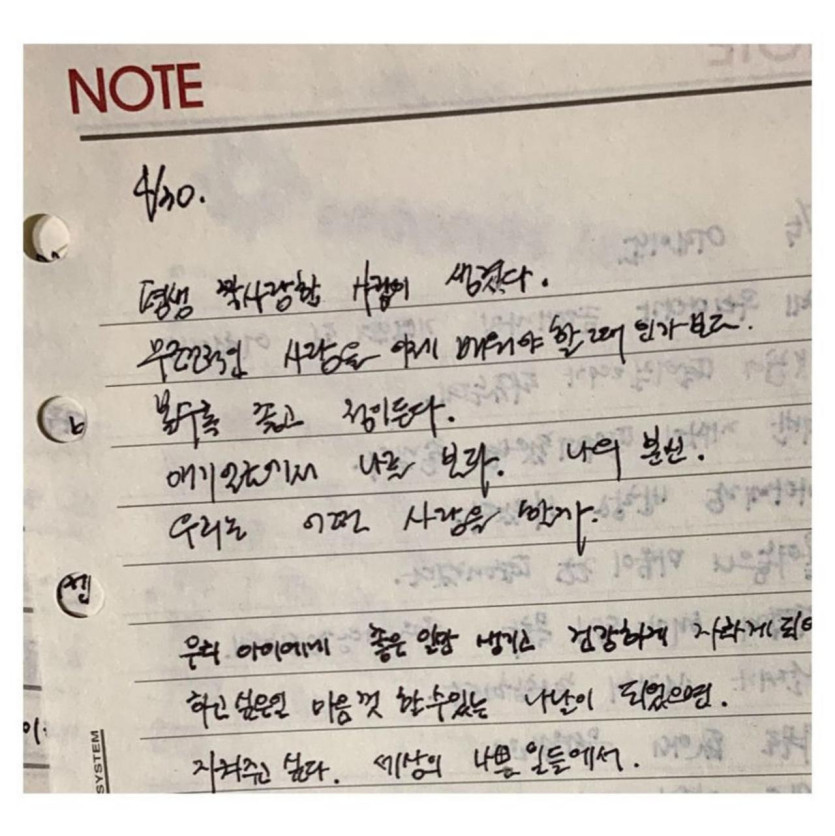 NOTE
4/30.
평생 짝사랑할 사람이 생겼다.
무조건적인 사랑을 이제 배워야 할 때 인가보다.
볼수록 좋고 정이든다.
나를 보라. 나의 분신.
우리는 어떤 사랑을 할까.
우리 아이에게 좋은 일만 생기고 건강하게 자라게 되어
하고싶은일 마음껏 할수있는 나날이 되었으면.
지켜주고 싶다. 세상의 나쁜일들에서.
SYSTEM